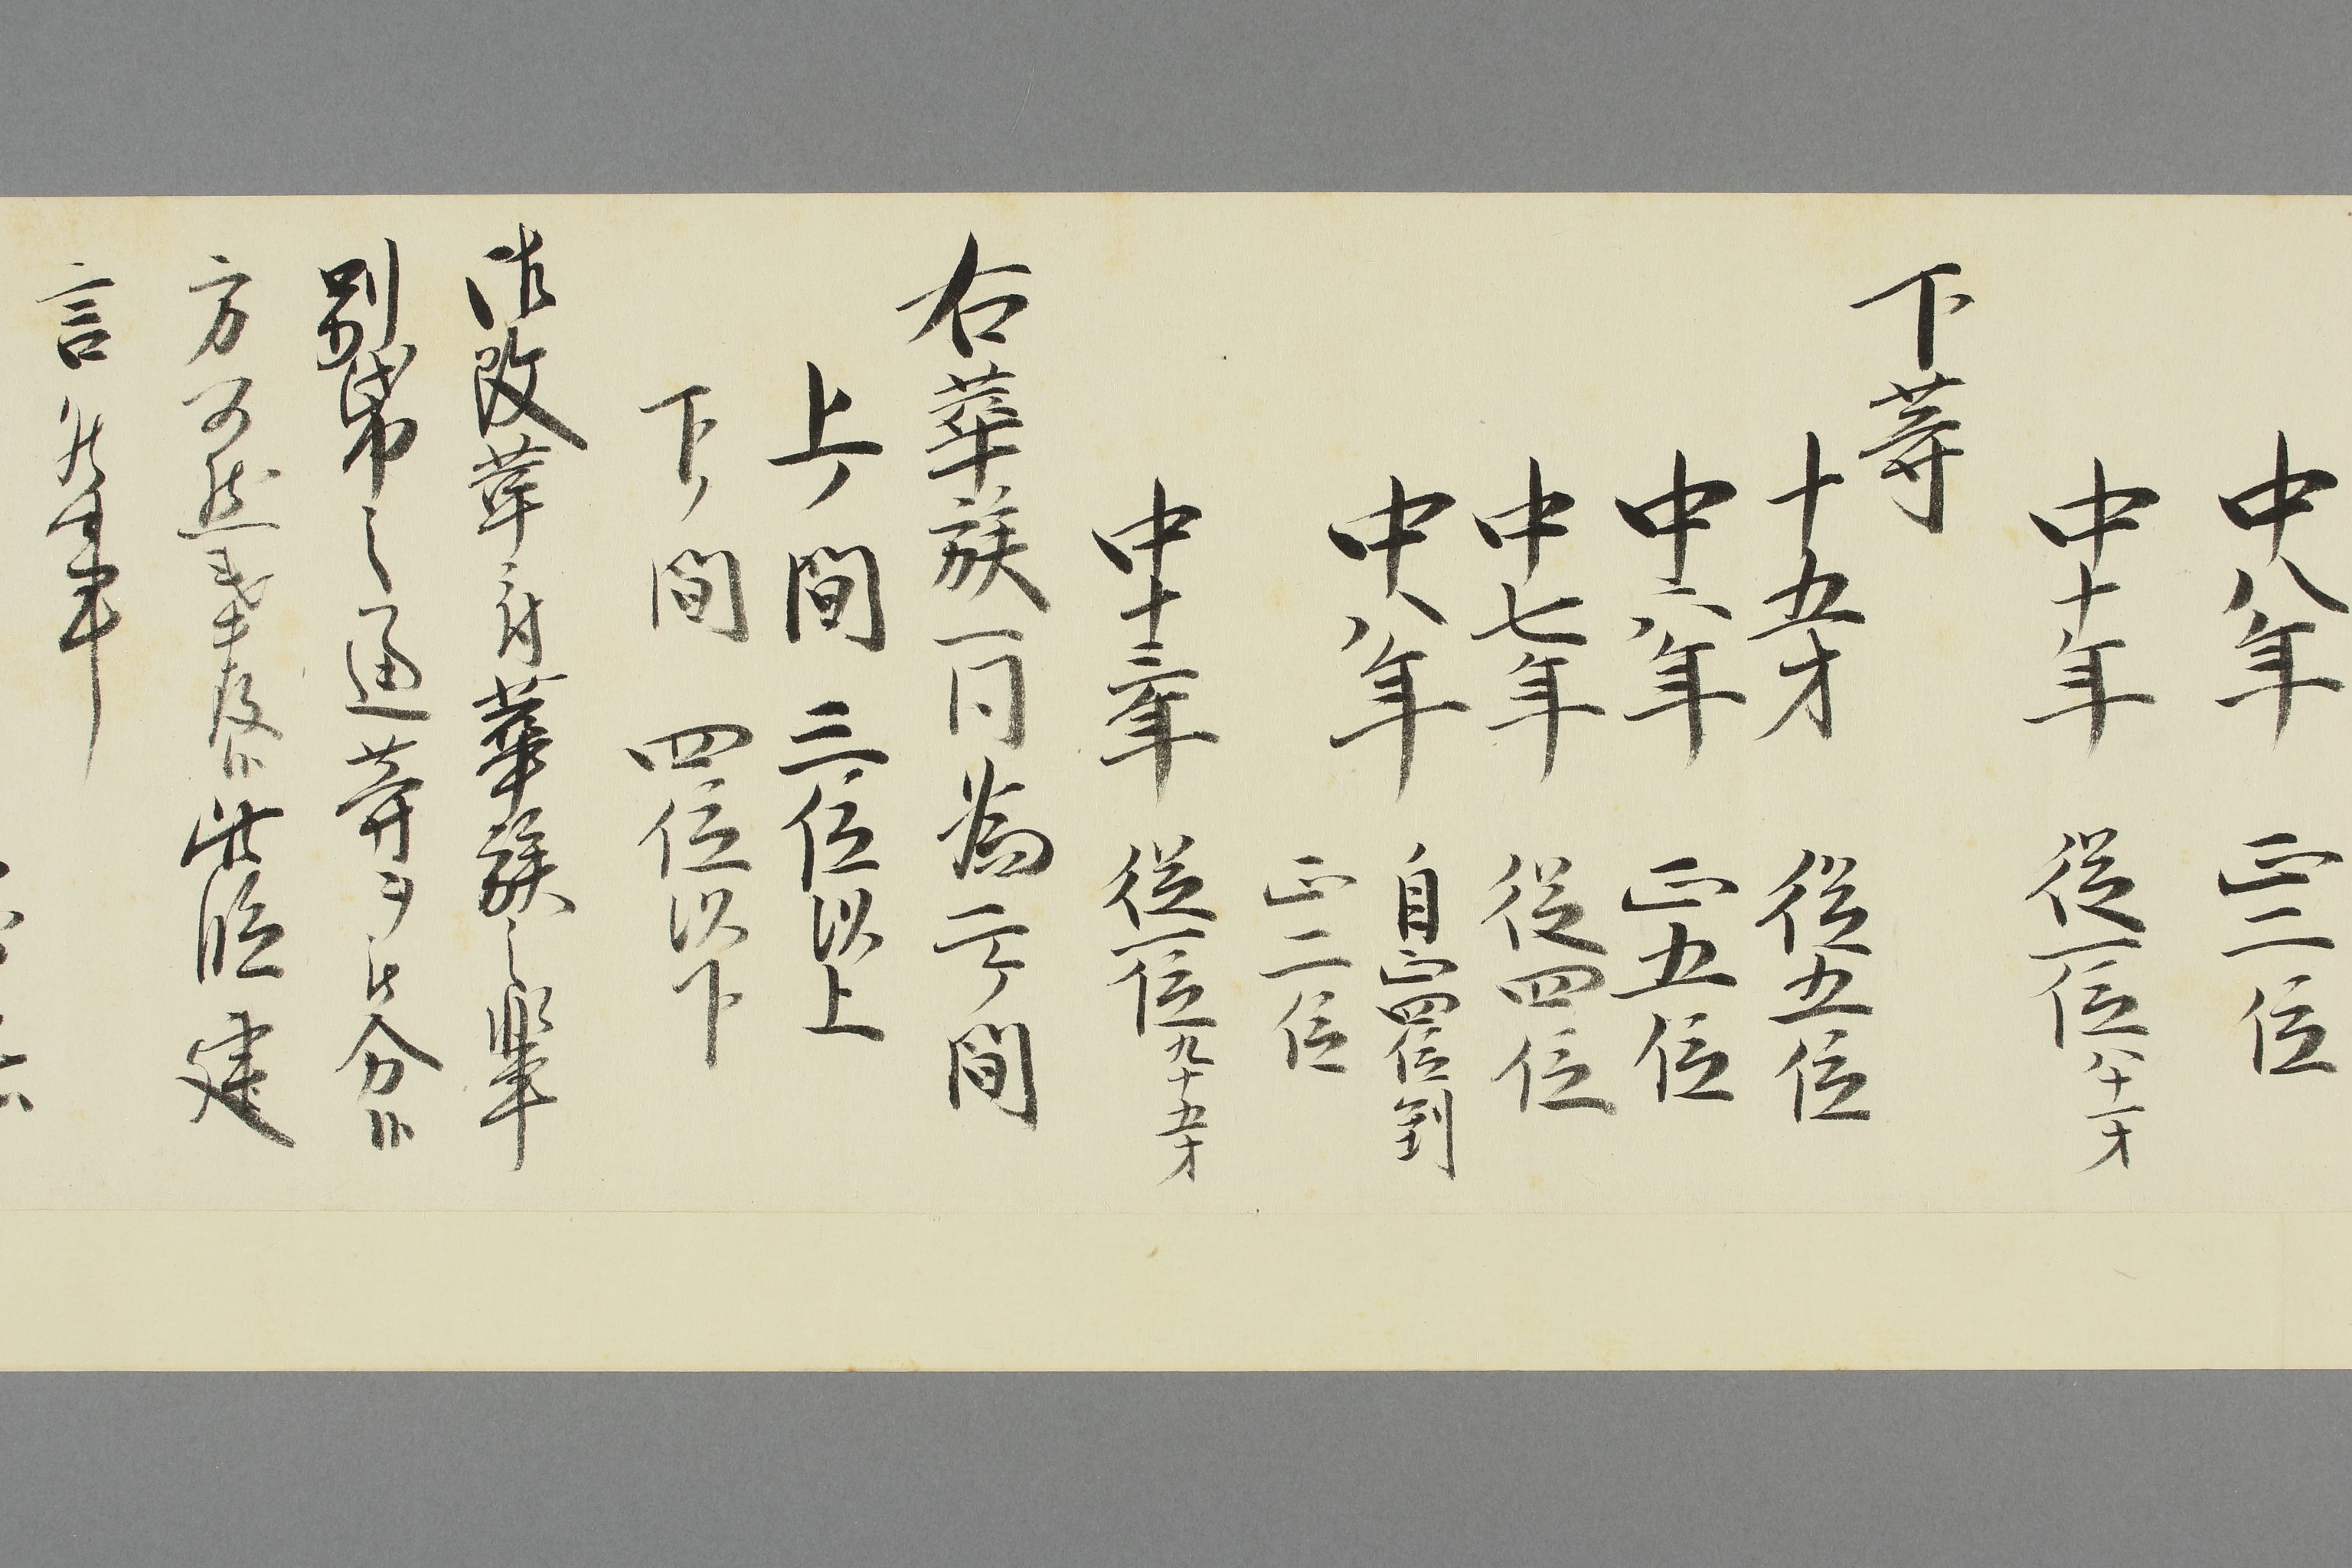 中八年　正二位
中十年　従一位八十一才
下等
十五才　従五位
中六年　正五位
中七年　従四位
中八年　自正四位到
正二位
中十三年　従一位九十五才
右華族一同為二ノ間
上ノ間　三位以上
下ノ間　四位以下
御改革ニ付華族之輩
別帋之通等ヲ以分
方可然哉奉存候此段建
言候事